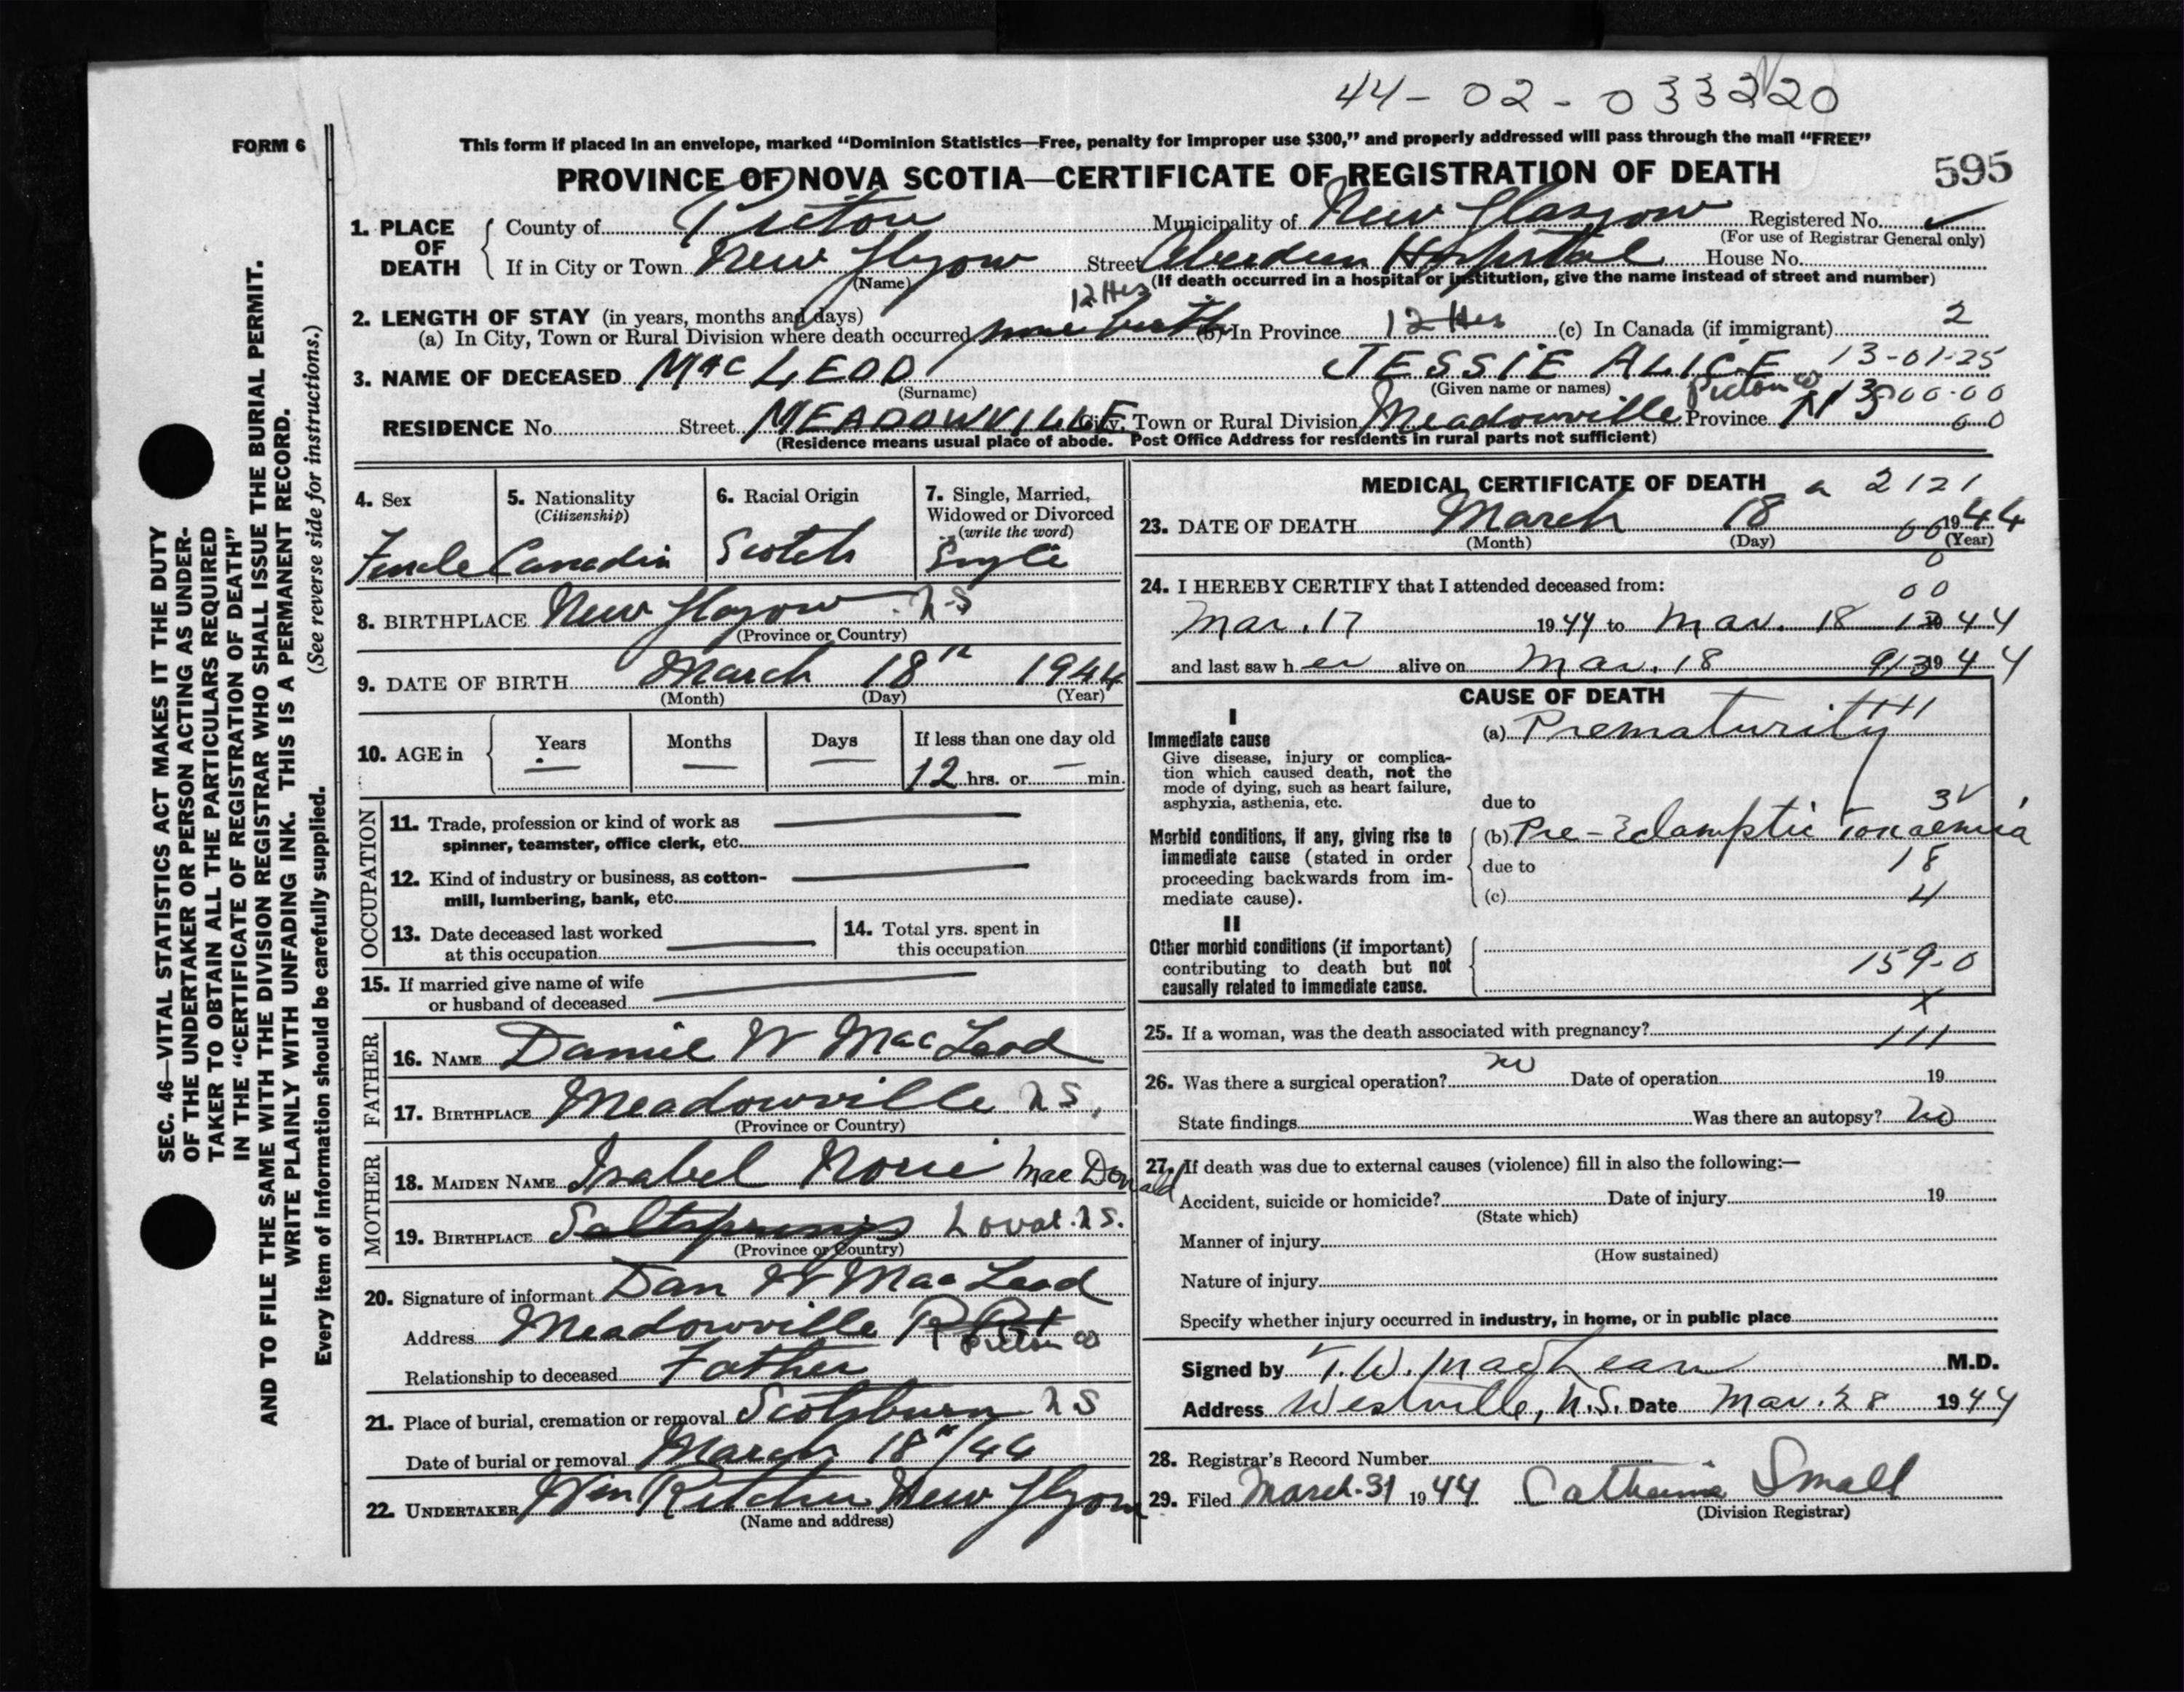 44-02-033220
FORM 6
This form if placed in an envelope, marked “Dominion Statistics—Free, penalty for improper use $300,” and properly addressed will pass through the mail “FREE”
PROVINCE OF NOVA SCOTIA—CERTIFICATE OF REGISTRATION OF DEATH 595
1. PLACE OF DEATH County of Pictou Municipality of New Glasgow Registered No.
(For use of Registrar General only)
If in City or Town New Glgow Street Aberdeen Hospital House No.
(Name) (If death occurred in a hospital or institution, give the name instead of street and number)
12 Hrs
2. LENGTH OF STAY (in years, months and days)
(a) In City, Town or Rural Division where death occurred since birth (b) In Province 12 Hrs (c) In Canada (if immigrant) 2
3. NAME OF DECEASED MacLEOD JESSIE ALICE 13-01-25
(Surname) (Given name or names) Pictou Co 13-00-00
RESIDENCE No. Street MEADOWVILLE City, Town or Rural Division Meadowville Province NS 00
(Residence means usual place of abode. Post Office Address for residents in rural parts not sufficient)
4. Sex 5. Nationality (Citizenship) 6. Racial Origin 7. Single, Married, Widowed or Divorced (write the word)
Female Canadin Scotch Single
8. BIRTHPLACE New Glgow N-S
(Province or Country)
9. DATE OF BIRTH March 18th 1944
(Month) (Day) (Year)
10. AGE in Years Months Days If less than one day old
— — — 12 hrs. or — min.
OCCUPATION
11. Trade, profession or kind of work as
spinner, teamster, office clerk, etc.
12. Kind of industry or business, as cotton-
mill, lumbering, bank, etc.
13. Date deceased last worked
at this occupation
14. Total yrs. spent in
this occupation
15. If married give name of wife
or husband of deceased
FATHER
16. NAME Daniel W MacLeod
17. BIRTHPLACE Meadowville N S.
(Province or Country)
MOTHER
18. MAIDEN NAME Isabel Norie MacDonald
19. BIRTHPLACE Saltsprings Lovat. N S.
(Province or Country)
20. Signature of informant Dan W MacLeod
Address Meadowville Pictou Co
Relationship to deceased Father
21. Place of burial, cremation or removal Scotsburn N S
Date of burial or removal March 18th/44
22. UNDERTAKER Wm Ritchie New Glgow
(Name and address)
MEDICAL CERTIFICATE OF DEATH a 2121
23. DATE OF DEATH March 18 00 1944
(Month) (Day) (Year)
0
24. I HEREBY CERTIFY that I attended deceased from:
00
Mar. 17 1944 to Mar. 18 1944
and last saw her alive on Mar. 18 913 1944
CAUSE OF DEATH
I
Immediate cause
Give disease, injury or complica-
tion which caused death, not the
mode of dying, such as heart failure,
asphyxia, asthenia, etc.
(a) Prematurity
due to 3
Morbid conditions, if any, giving rise to
immediate cause (stated in order
proceeding backwards from im-
mediate cause).
(b) Pre-Eclamptic Toxaemia
due to 18
(c) 4
II
Other morbid conditions (if important)
contributing to death but not
causally related to immediate cause.
159-0
x
25. If a woman, was the death associated with pregnancy? 111
26. Was there a surgical operation? no Date of operation 19
State findings Was there an autopsy? No
27. If death was due to external causes (violence) fill in also the following:—
Accident, suicide or homicide? Date of injury 19
(State which)
Manner of injury
(How sustained)
Nature of injury
Specify whether injury occurred in industry, in home, or in public place
Signed by T.W. MacLean M.D.
Address Westville, N.S. Date Mar. 28 1944
28. Registrar's Record Number
29. Filed March. 31 1944 Catherine Small
(Division Registrar)
SEC. 46—VITAL STATISTICS ACT MAKES IT THE DUTY
OF THE UNDERTAKER OR PERSON ACTING AS UNDER-
TAKER TO OBTAIN ALL THE PARTICULARS REQUIRED
IN THE “CERTIFICATE OF REGISTRATION OF DEATH”
AND TO FILE THE SAME WITH THE DIVISION REGISTRAR WHO SHALL ISSUE THE BURIAL PERMIT.
WRITE PLAINLY WITH UNFADING INK. THIS IS A PERMANENT RECORD.
Every item of information should be carefully supplied. (See reverse side for instructions.)